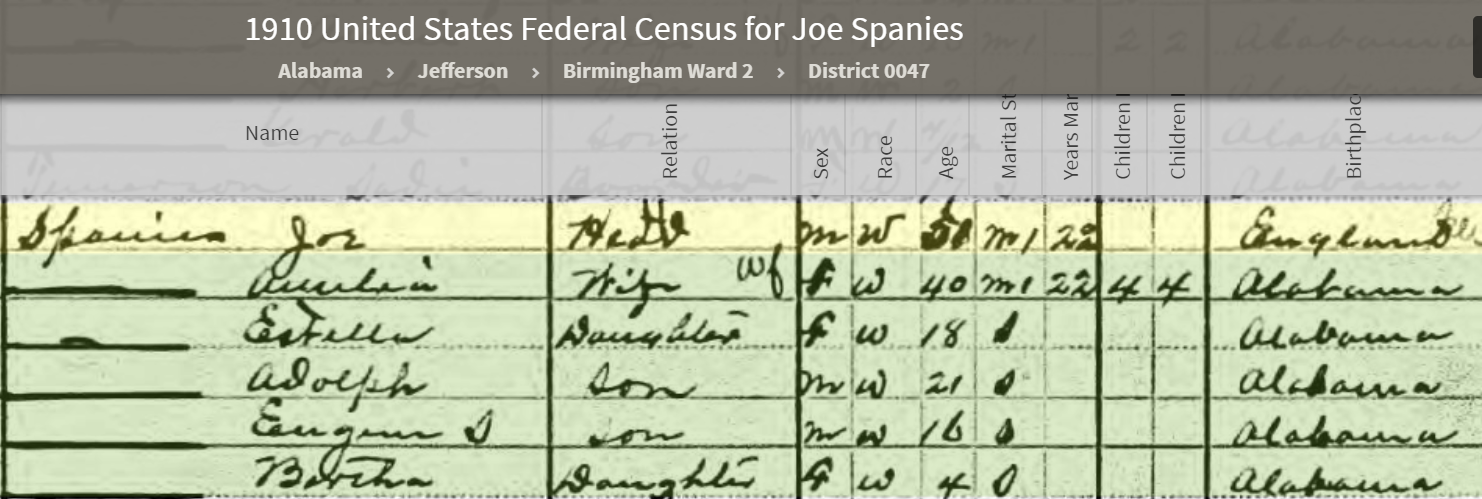 1910 United States Federal Census for Joe Spanies
Alabama > Jefferson > Birmingham Ward 2 > District 0047
Name Relation Sex Race Age Marital St Years Mar Children Children Birthplac
Spanies Joe Head M W M1 22 England
Wife wf F W 40 M1 22 4 4 Alabama
Estella Daughter F W 18 S Alabama
Adolph Son M W 21 S Alabama
Eugene S Son M W 16 S Alabama
Bertha Daughter F W 4 S Alabama